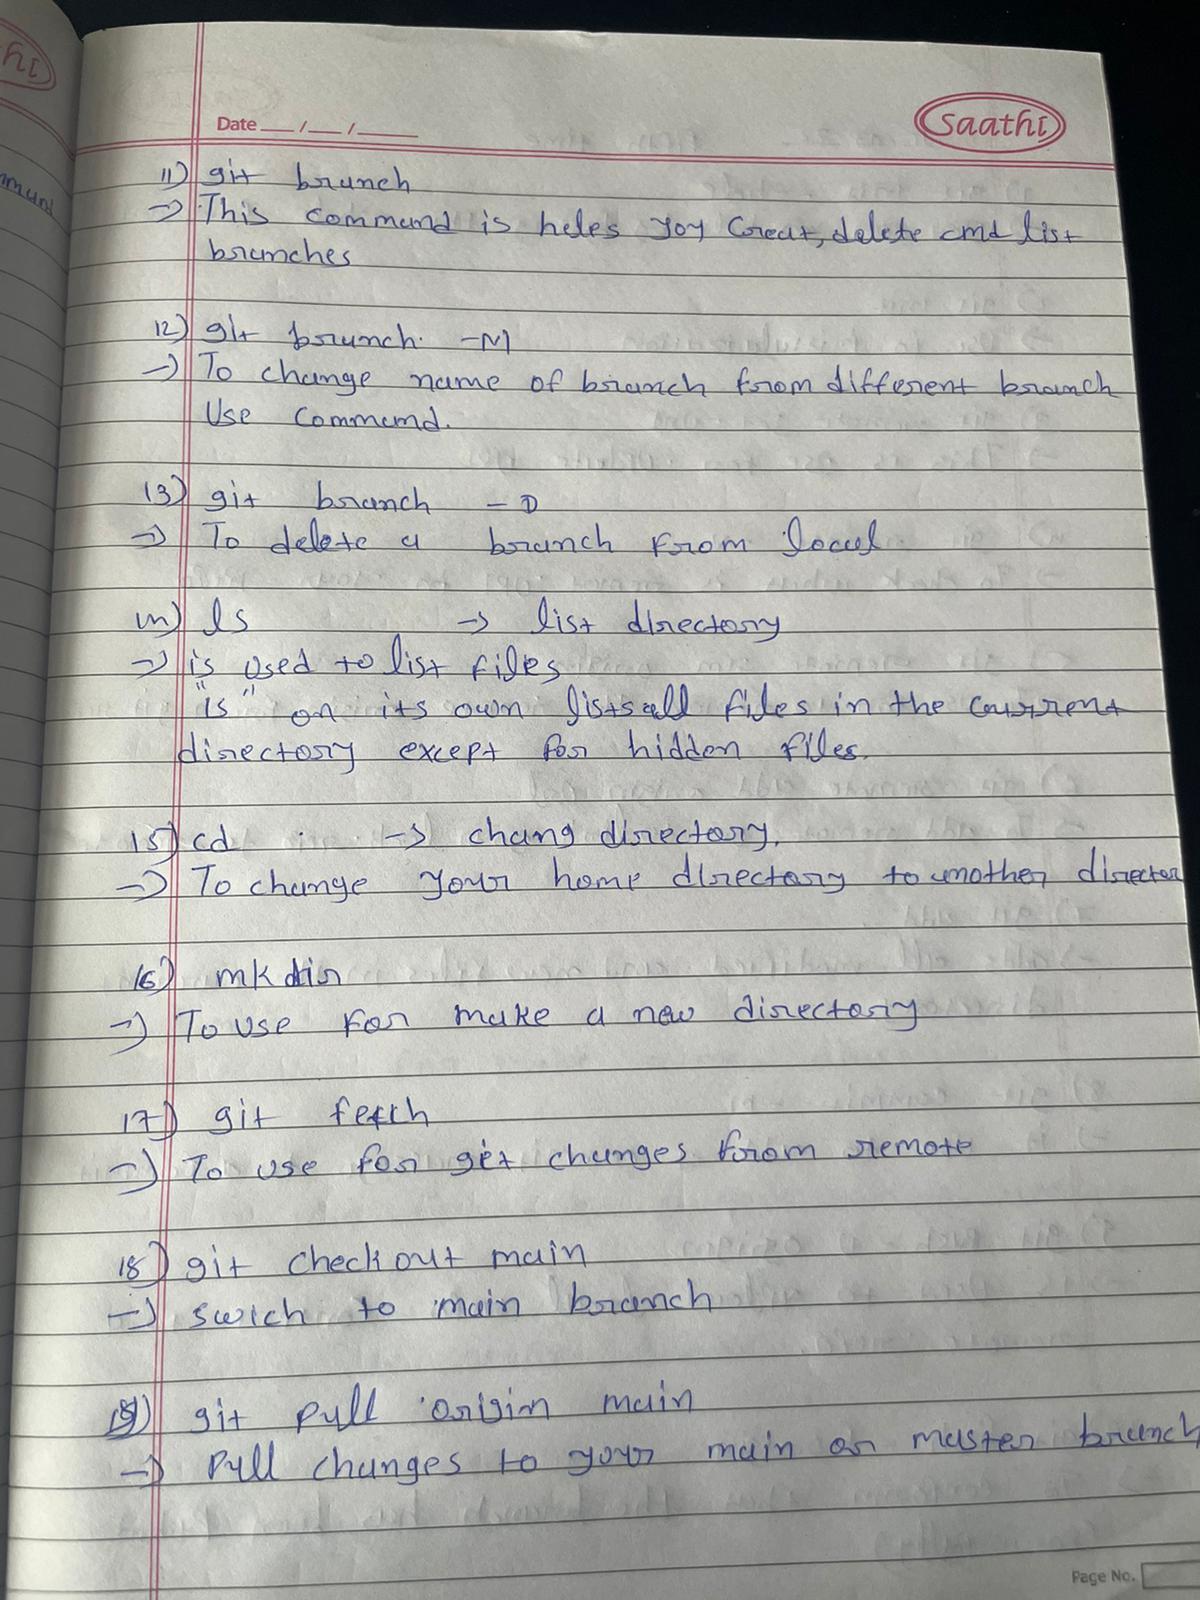 Date __/__/____
saathi
11) git branch
→ This command is heles you Creat, delete and list
branches
12) git branch -M
→ To change name of branch from different branch
Use Command.
13) git branch -D
→ To delete a branch from local
14) ls → list directory
→ is used to list files
"is" on its own lists all files in the current
directory except for hidden files.
15) cd → chang directory.
→ To change your home directory to another director
16) mkdir
→ To use for make a new directory
17) git fetch
→ To use for get changes from remote
18) git checkout main
→ swich to main branch
19) git pull origin main
→ Pull changes to your main or master branch
Page No.